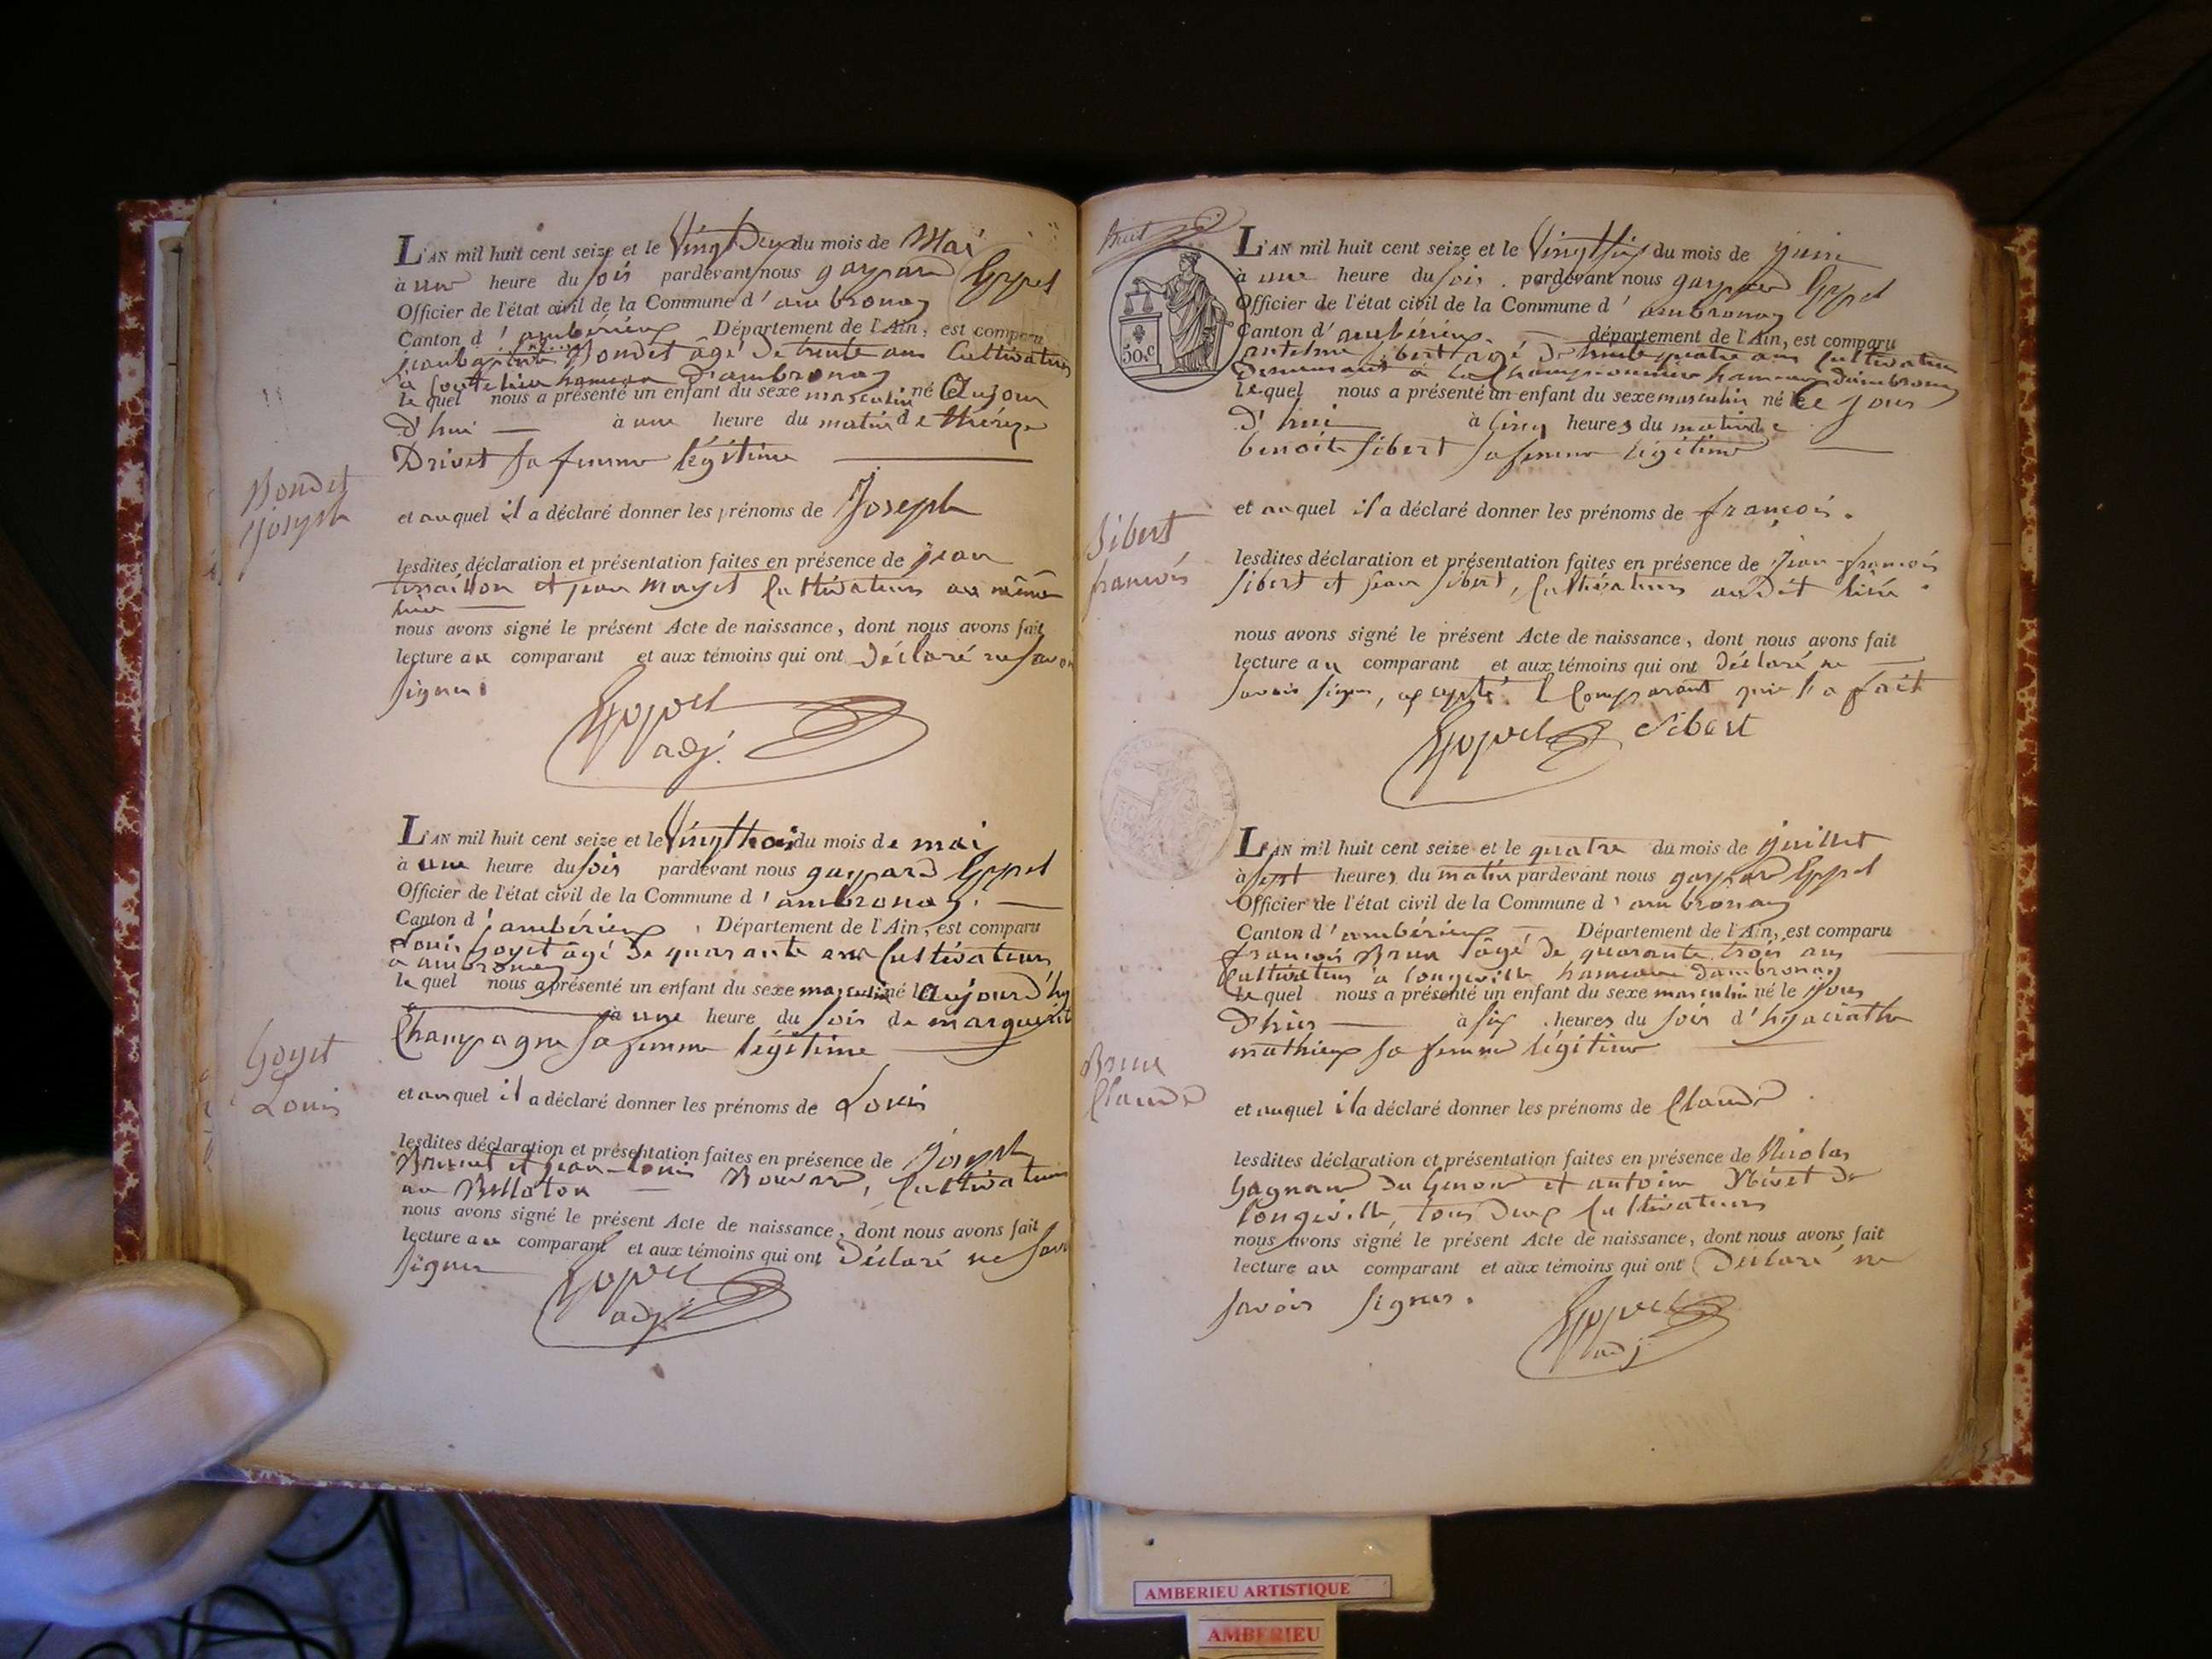 L'AN mil huit cent seize et le Vingt Deux du mois de Mai
à une heure du soir pardevant nous gaspard Eppel
Officier de l'état civil de la Commune d'ambronay
Canton d'ambérieux Département de l'Ain, est comparu
jean âgé de trente ans Cultivateur
à hameau D'ambronay
le quel nous a présenté un enfant du sexe masculin né Aujour
D'hui à une heure du matin de thérèze
Drivet sa femme légitime
Bondet
Joseph
et auquel il a déclaré donner les prénoms de Joseph
lesdites déclaration et présentation faites en présence de jean
terraillon et jean Cultivateurs au même
lieu
nous avons signé le présent Acte de naissance, dont nous avons fait
lecture au comparant et aux témoins qui ont Déclaré ne savoir
signer
adj.
L'AN mil huit cent seize et le Vingt trois du mois de mai
à une heure du soir pardevant nous gaspard Eppel
Officier de l'état civil de la Commune d'ambronay.
Canton d'ambérieux, Département de l'Ain, est comparu
Louis goyet âgé de quarante ans Cultivateur
à ambronay
le quel nous a présenté un enfant du sexe masculin né le Aujourd'hy
à une heure du soir de marguerite
Champagne sa femme légitime
Goyet
Louis
et auquel il a déclaré donner les prénoms de Louis
lesdites déclaration et présentation faites en présence de Joseph
et jean-Louis Bouvard, Cultivateurs
au Bellaton
nous avons signé le présent Acte de naissance, dont nous avons fait
lecture au comparant et aux témoins qui ont Déclaré ne savoir
signer
adj.
huit
50.C
L'AN mil huit cent seize et le Vingt six du mois de juin
à une heure du soir. pardevant nous gaspard Eppel
Officier de l'état civil de la Commune d'ambronay
Canton d'ambérieux. département de l'Ain, est comparu
antelme sibert agé de trente quatre ans Cultivateur
Demeurant à la Championnière hameau d'ambronay
lequel nous a présenté un enfant du sexe masculin né le Ce jour
D'hui à Cinq heures du matin de
benoite Sibert sa femme légitime
Sibert
francois
et auquel il a déclaré donner les prénoms de françois.
lesdites déclaration et présentation faites en présence de Jean-françois
Sibert et jean Sibert, Cultivateurs audit lieu.
nous avons signé le présent Acte de naissance, dont nous avons fait
lecture au comparant et aux témoins qui ont Déclaré ne
savoir signer, excepté le Comparant qui l'a fait
Sibert
L'AN mil huit cent seize et le quatre du mois de juillet
à sept heures du matin pardevant nous gaspard Eppel
Officier de l'état civil de la Commune d'ambronay
Canton d'ambérieux Département de l'Ain, est comparu
francois Brun âgé de quarante trois ans
Cultivateur à longeville hameau Dambronay
le quel nous a présenté un enfant du sexe masculin né le jour
D'hier à six heures du soir d'hyacinthe
mathieux sa femme légitime
Brun
Claude
et auquel il a déclaré donner les prénoms de Claude
lesdites déclaration et présentation faites en présence de Nicolas
Gagneur Du Genoud et antoine Nivet De
Longeville, tous Deux Cultivateurs
nous avons signé le présent Acte de naissance, dont nous avons fait
lecture au comparant et aux témoins qui ont Déclaré ne
savoir signer.
adj
AMBERIEU ARTISTIQUE
AMBERIEU